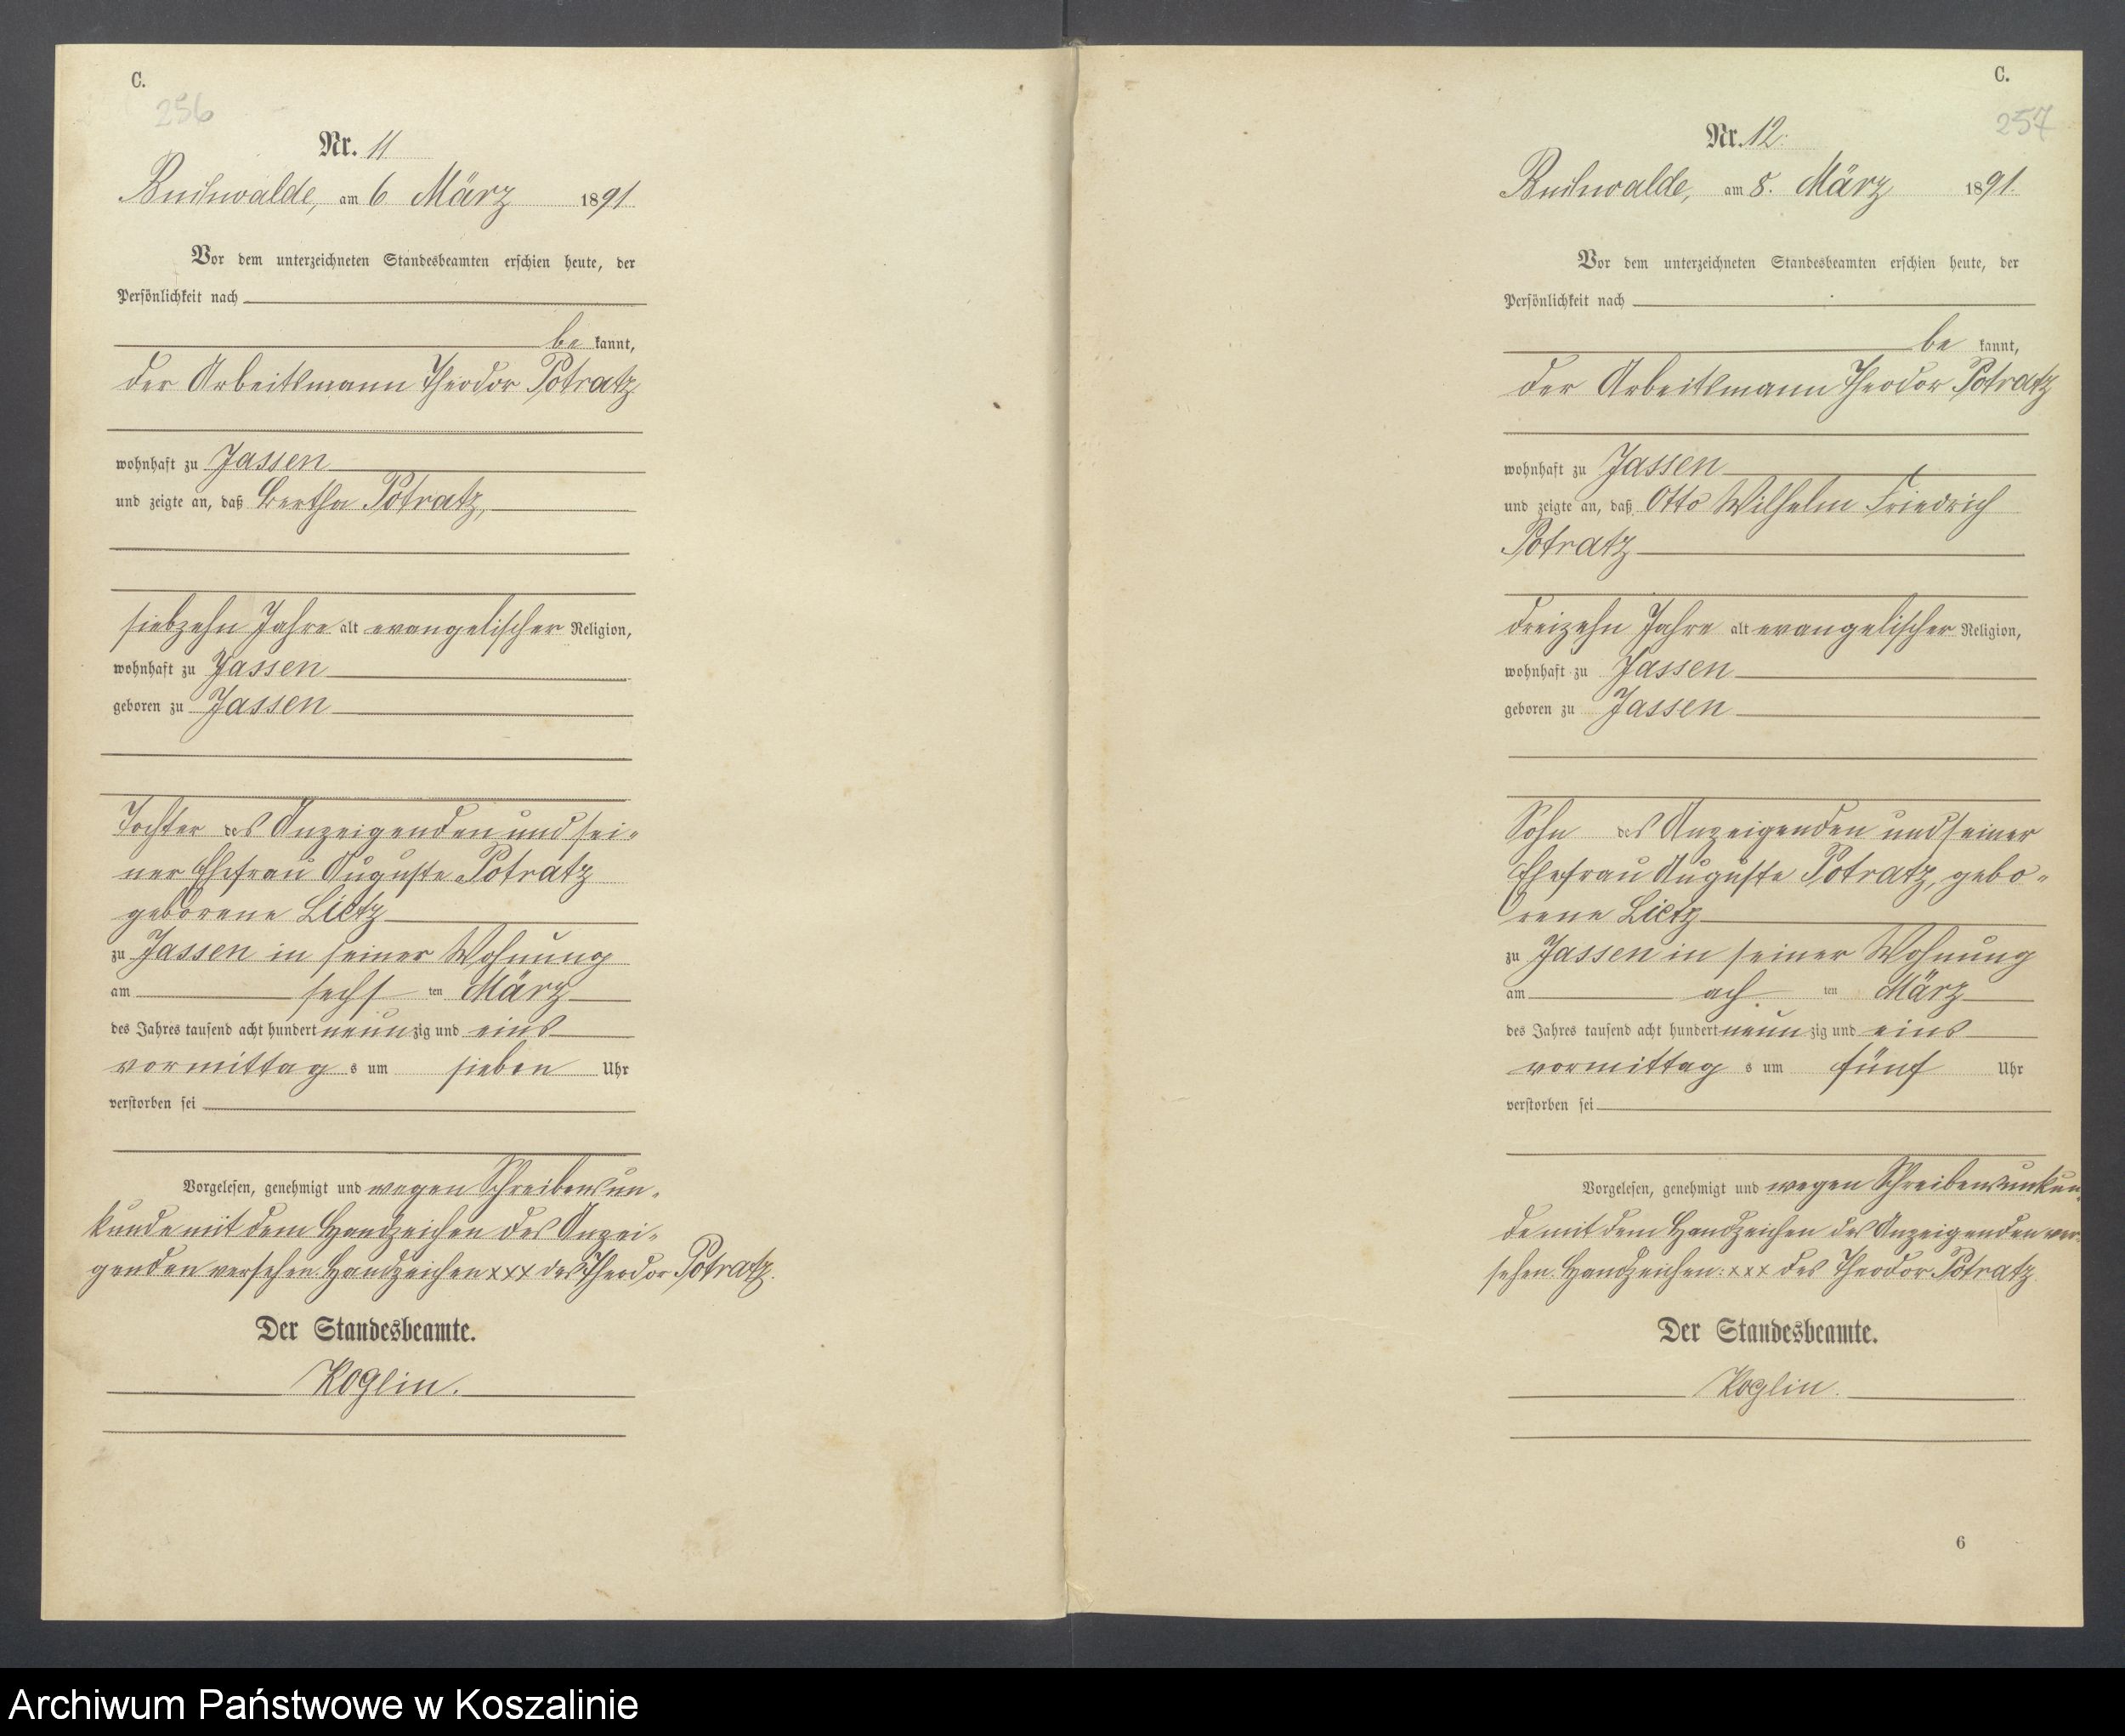 C.
256
Nr. 11
Buchwalde, am 6 März 1891
Vor dem unterzeichneten Standesbeamten erschien heute, der
Persönlichkeit nach
be kannt,
der Arbeitsmann Theodor Potratz
wohnhaft zu Jassen
und zeigte an, daß Bertha Potratz,
siebzehn Jahre alt evangelischer Religion,
wohnhaft zu Jassen
geboren zu Jassen
Tochter des Anzeigenden und sei-
ner Ehefrau Auguste Potratz
geborene Lietz
zu Jassen in seiner Wohnung
am sechs ten März
des Jahres tausend acht hundert neun zig und eins
vormittag s um sieben Uhr
verstorben sei
Vorgelesen, genehmigt und wegen Schreibensun-
kunde mit dem Handzeichen des Anzei-
genden versehen. Handzeichen xxx des Theodor Potratz.
Der Standesbeamte.
Koglin.
C.
257
Nr. 12.
Buchwalde, am 8. März 1891.
Vor dem unterzeichneten Standesbeamten erschien heute, der
Persönlichkeit nach
be kannt,
der Arbeitsmann Theodor Potratz
wohnhaft zu Jassen
und zeigte an, daß Otto Wilhelm Friedrich
Potratz
dreizehn Jahre alt evangelischer Religion,
wohnhaft zu Jassen
geboren zu Jassen
Sohn des Anzeigenden und seiner
Ehefrau Auguste Potratz, gebo-
rene Lietz
zu Jassen in seiner Wohnung
am ach ten März
des Jahres tausend acht hundert neun zig und eins
vormittag s um fünf Uhr
verstorben sei
Vorgelesen, genehmigt und wegen Schreibensunkun-
de mit dem Handzeichen des Anzeigenden ver-
sehen. Handzeichen: xxx des Theodor Potratz.
Der Standesbeamte.
Koglin.
6
Archiwum Państwowe w Koszalinie